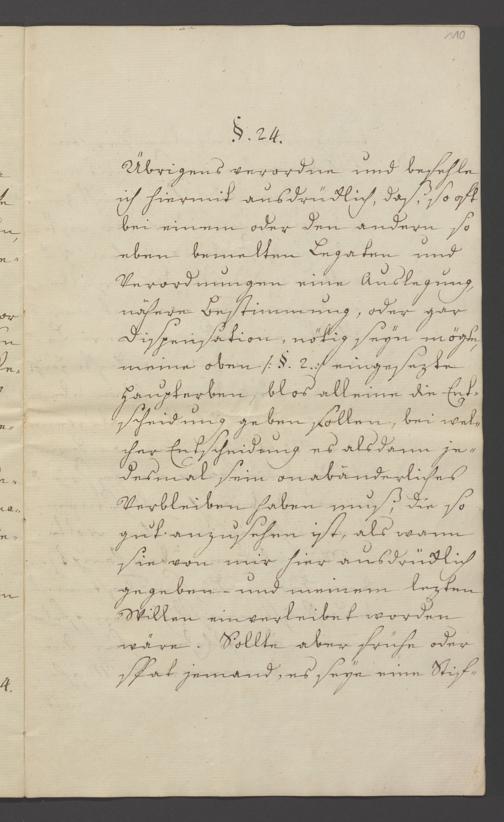 110
§. 24.
Übrigens verordne und befehle
ich hiermit ausdrücklich, daß, so oft
bei einem oder den andern so
eben bemelten Legaten und
Verordnungen eine Auslegung,
nähere Bestimmung, oder gar
Dispensation, nötig seyn mögte,
meine oben /: §. 2. :/ eingesezte
Haupterben, blos alleine die Ent-
scheidung geben sollen, bei wel-
cher Entscheidung es alsdann je-
desmal sein onabänderliches
Verbleiben haben mus, die so
gut anzusehen ist, als wann
sie von mir hier ausdrücklich
gegeben - und meinem lezten
Willen einverleibet worden
wäre. Sollte aber frühe oder
spat jemand, es seye eine Stif-
4.